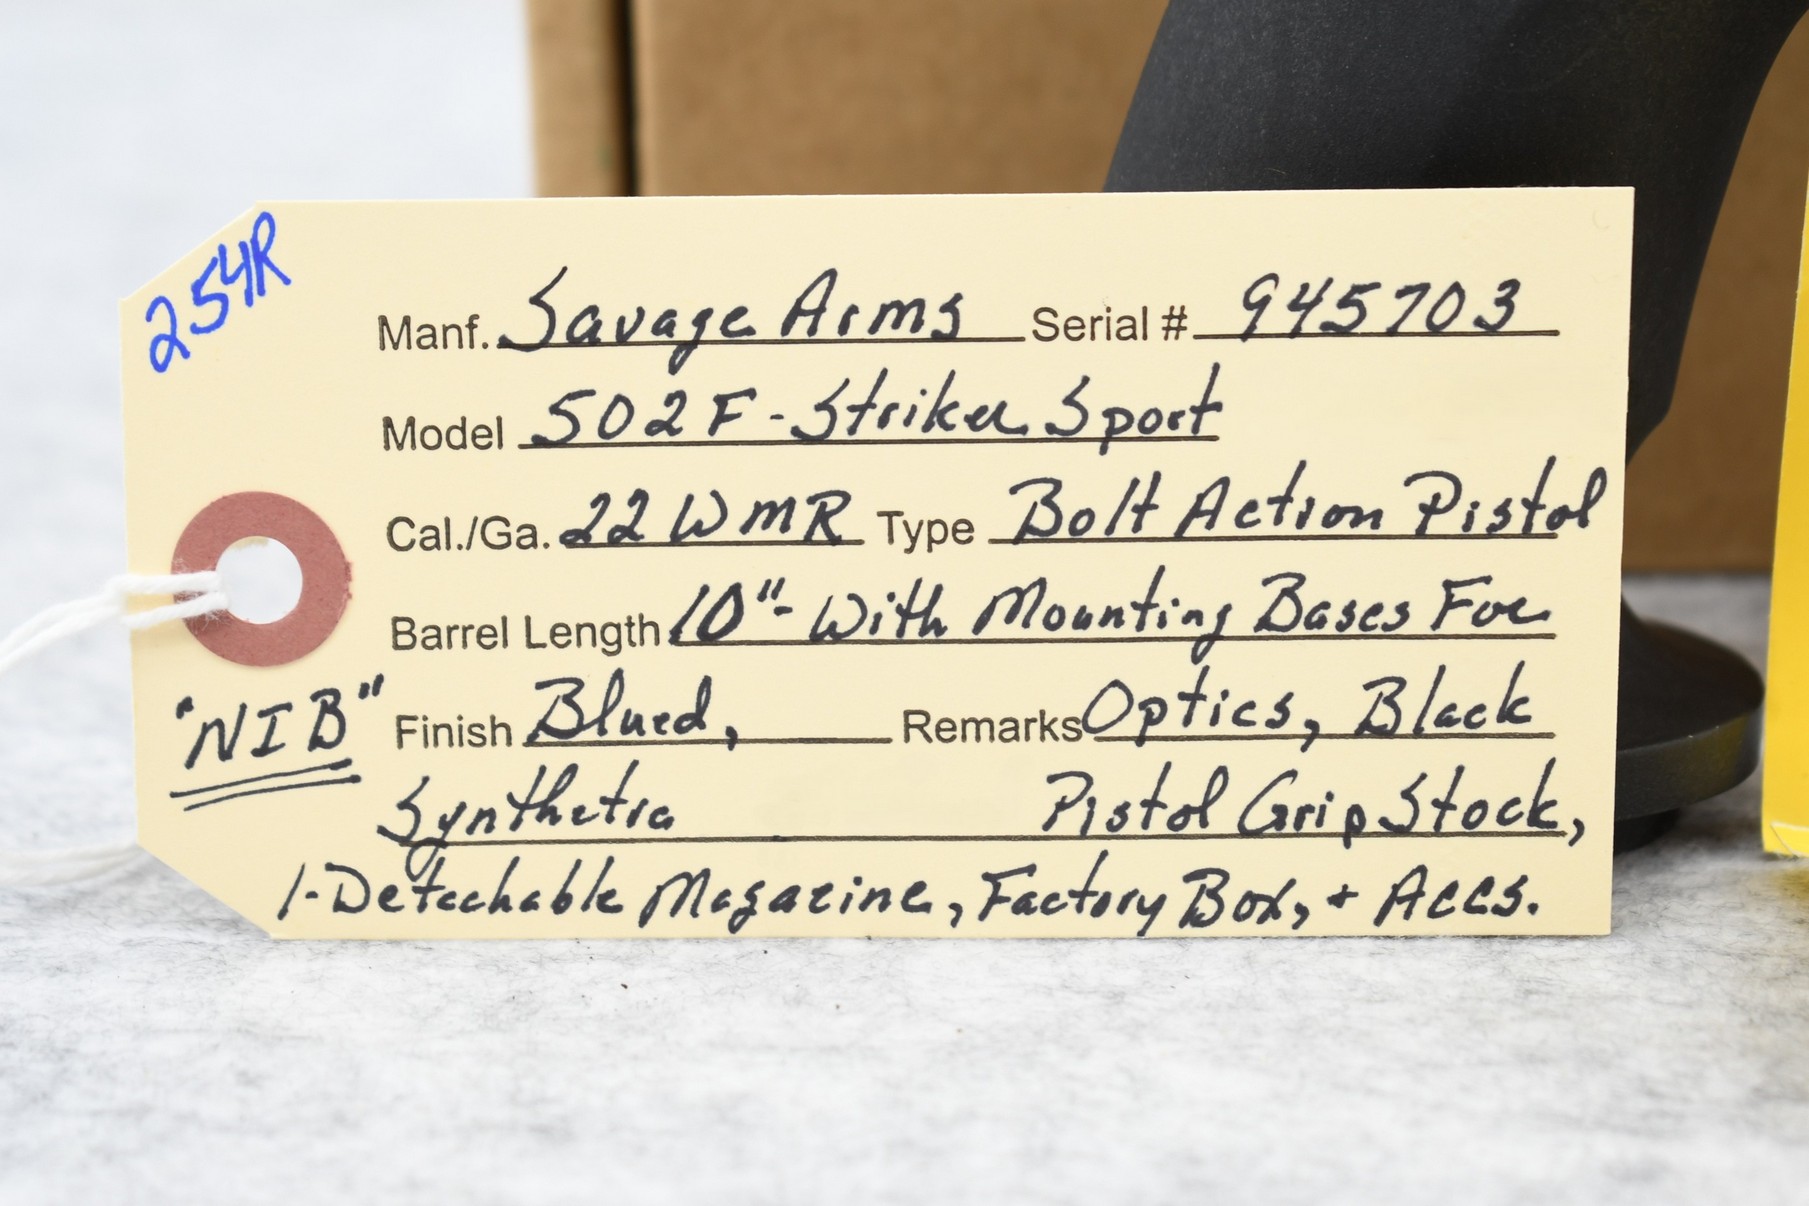 254R
Manf. Savage Arms Serial # 945703
Model 502F-Striker Sport
Cal./Ga. 22 WMR Type Bolt Action Pistol
Barrel Length 10"- With Mounting Bases For
"NIB" Finish Blued, Remarks Optics, Black
Synthetic Pistol Grip Stock,
1-Detachable Magazine, Factory Box, + Accs.